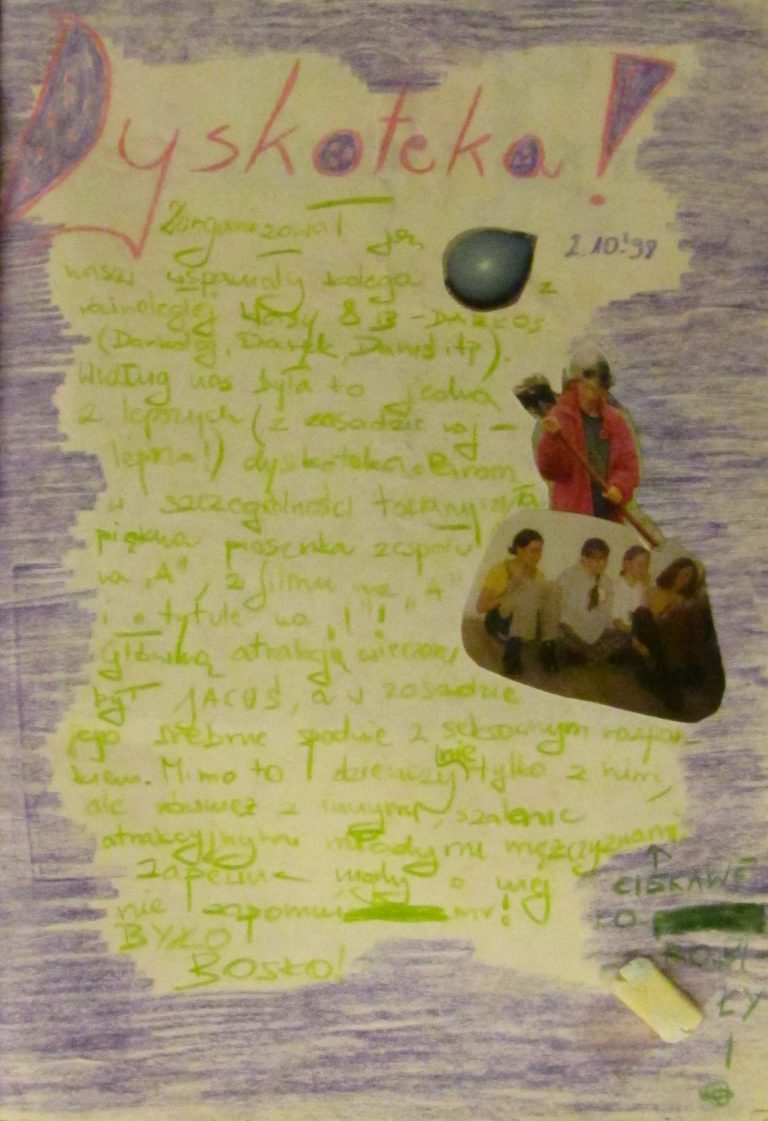 Dyskoteka!
Zorganizował ją
2.10.'98
nasz wspaniały kolega z
równoległej klasy 8 B - DARCOS
(Dareczek, Darek, Daruś itp).
Według nas była to jedna
z lepszych (w zasadzie naj-
lepsza!) dyskoteka.
w szczególności towarzyszyła
piękna piosenka zespołu
na „A", z filmu na "A"
i o tytule na "I"
Główną atrakcją wieczoru
był JACUŚ, a w zasadzie
jego srebrne spodnie z seksownym rozpor-
kiem. Mimo to dziewczyny nie tylko z nim,
ale również z innymi, szalenie
atrakcyjnymi młodymi mężczyznami
zapewne nigdy o niej
nie zapomni my!
BYŁO
BOSKO!
CIEKAWE
CO